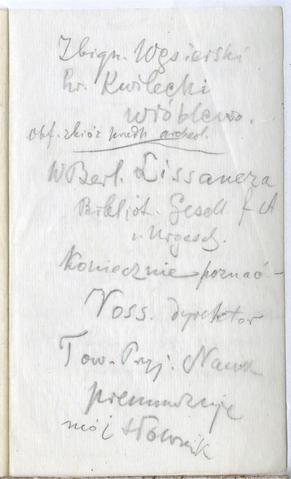 Zbign. Węsierski
hr. Kwilecki
Wróblewo.
obf. zbiór przedh. archeol.
W Berl. Lissauera
Bibliot. Gesell f. A
u. Urgesch.
Koniecznie poznać –
Voss. dyrektor
Tow. Przyj. Nauk
prenumeruje
mój Słownik